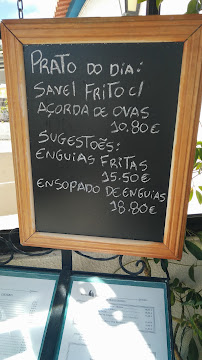 PRATO DO DIA:
SAVEL FRITO C/
AÇORDA DE OVAS
10.80€
SUGESTÕES:
ENGUIAS FRITAS
15.50€
ENSOPADO DE ENGUIAS
18.80€